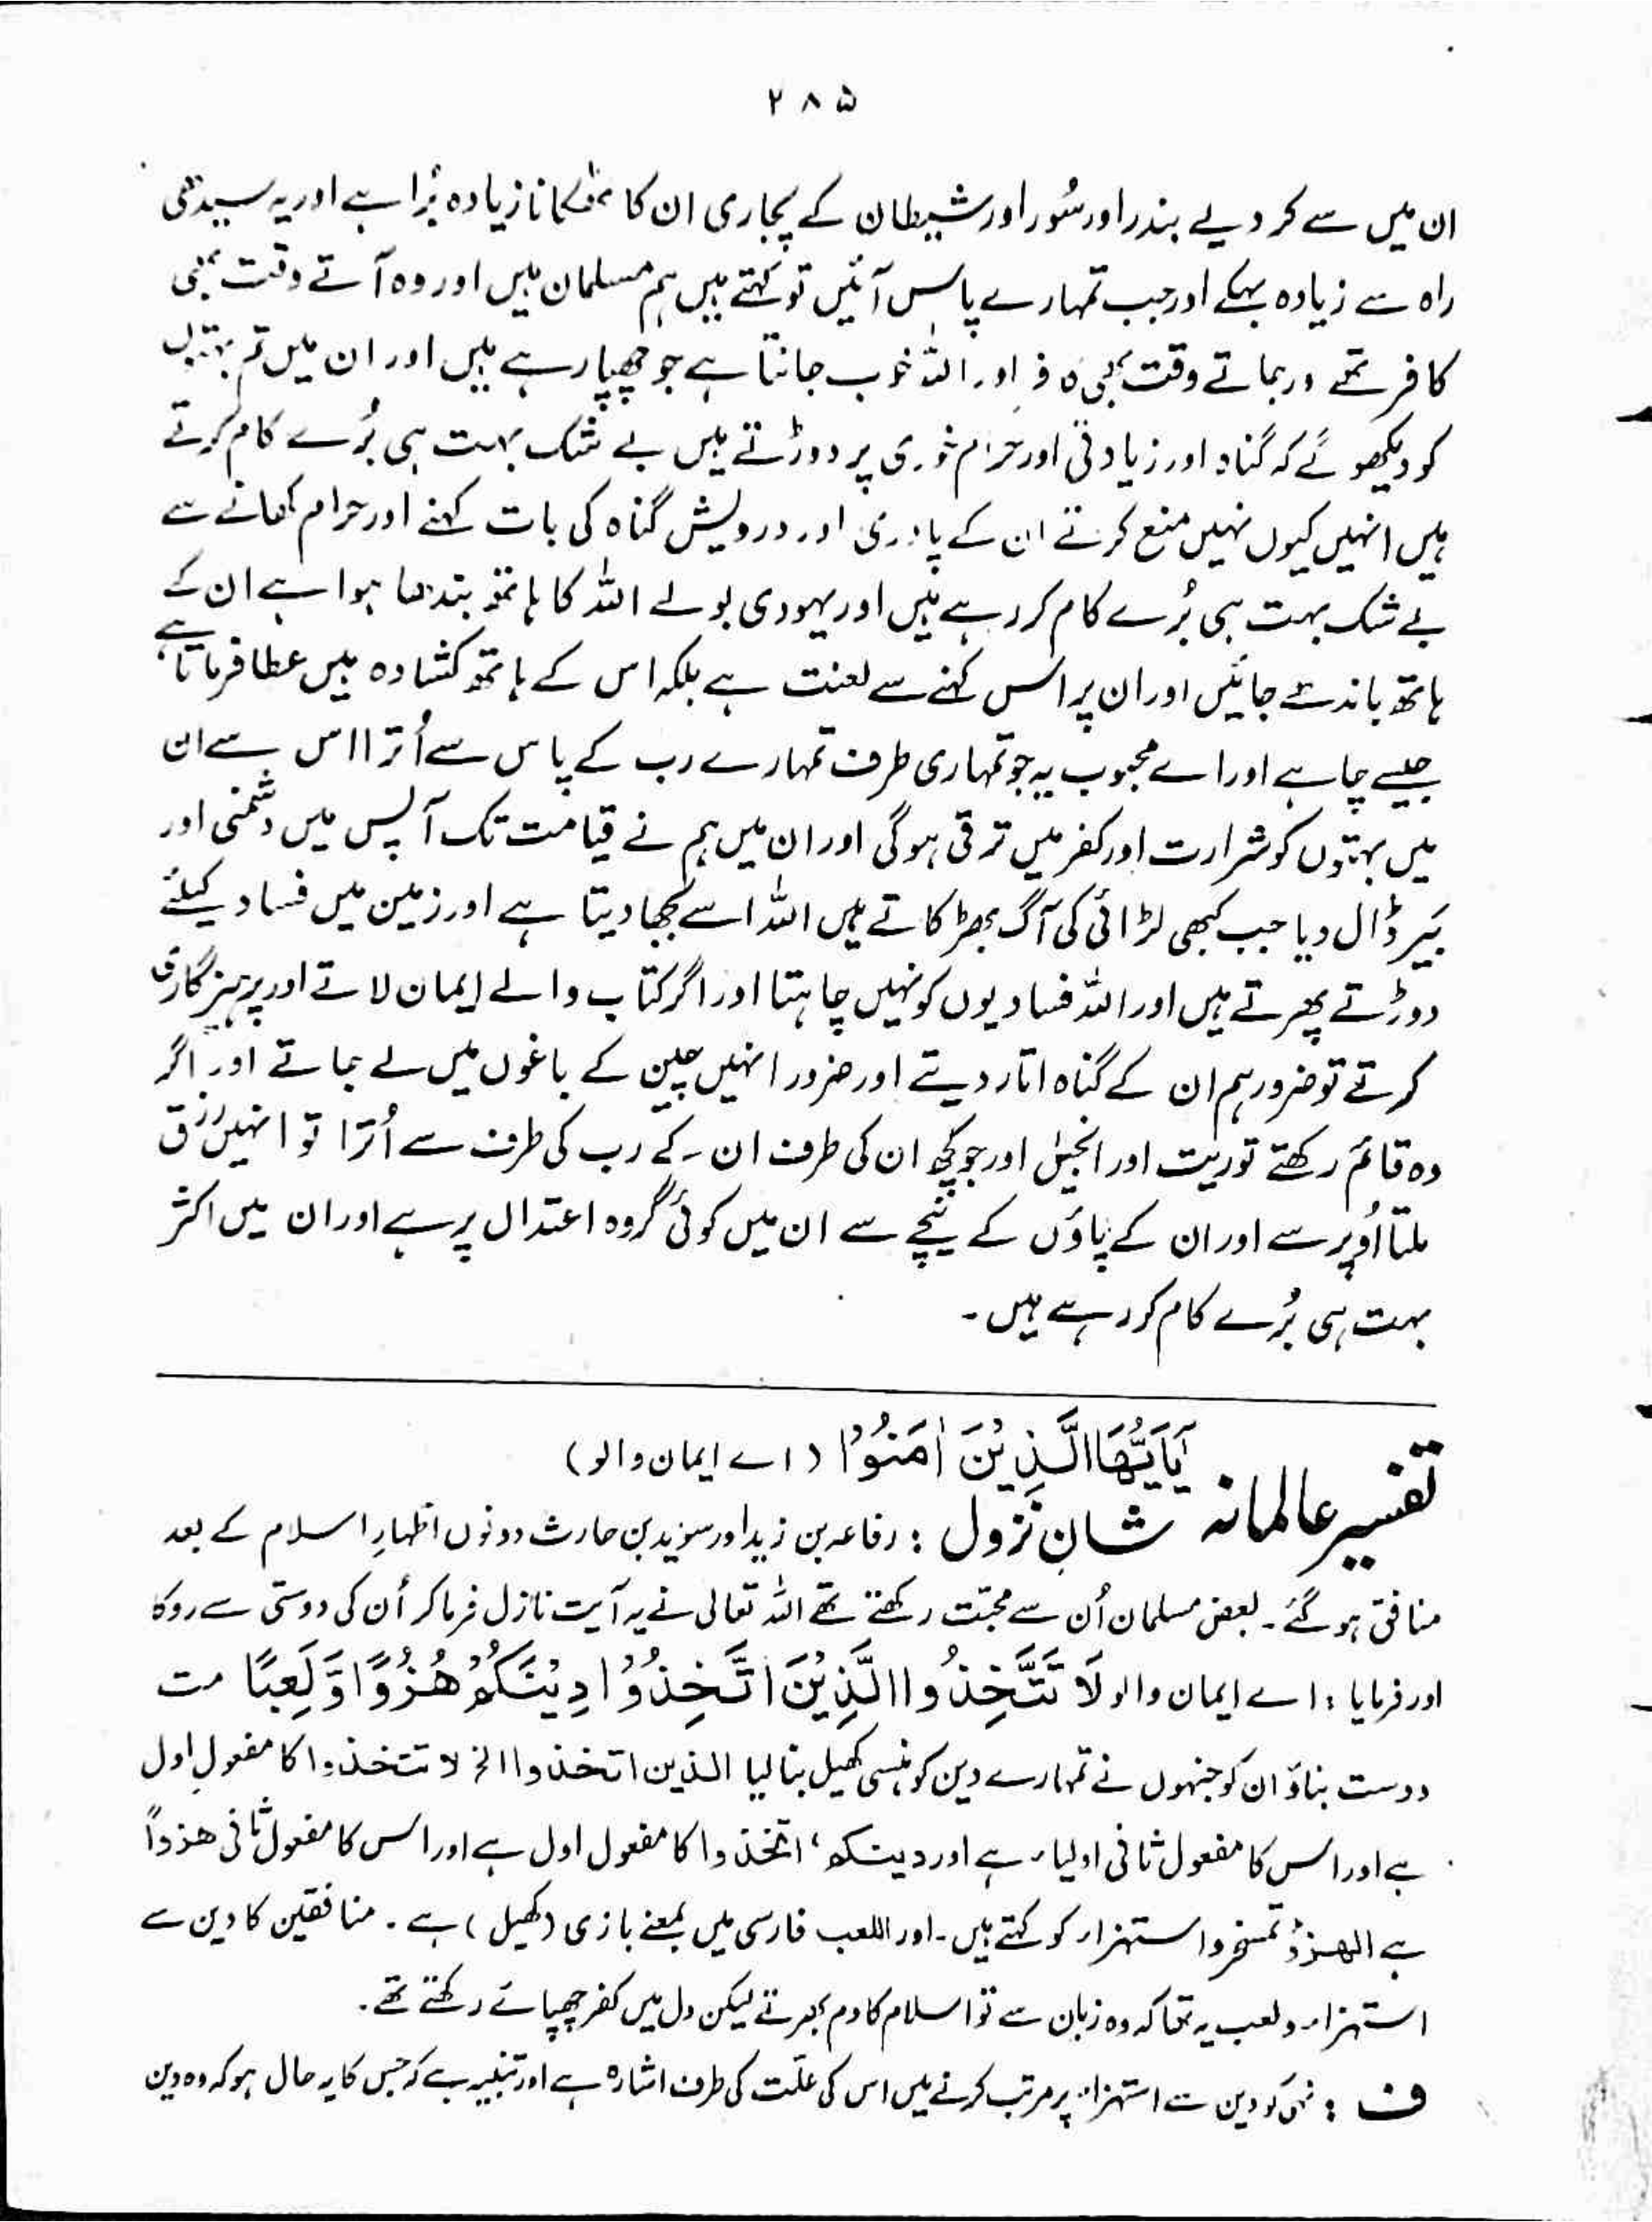 ۲۸۵
ان میں سے کر دیے بندر اور سُور اور شیطان کے پجاری ان کا ٹھکانا زیادہ بُرا ہے اور یہ سیدھی
راہ سے زیادہ بہکے اور جب تمہارے پاس آئیں تو کہتے ہیں ہم مسلمان ہیں اور وہ آتے وقت بھی
کافر تھے اور جاتے وقت بھی کافر اور اللہ خوب جانتا ہے جو چھپا رہے ہیں اور ان میں تم بہتوں
کو دیکھو گے کہ گناہ اور زیادتی اور حرام خوری پر دوڑتے ہیں بے شک بہت ہی بُرے کام کرتے
ہیں انہیں کیوں نہیں منع کرتے ان کے پادری اور درویش گناہ کی بات کہنے اور حرام کھانے سے
بے شک بہت ہی بُرے کام کر رہے ہیں اور یہودی بولے اللہ کا ہاتھ بندھا ہوا ہے ان کے
ہاتھ باندھے جائیں اور ان پر اس کہنے سے لعنت ہے بلکہ اس کے ہاتھ کشادہ ہیں عطا فرماتا ہے
جیسے چاہے اور اے محبوب یہ جو تمہاری طرف تمہارے رب کے پاس سے اُترا اس سے ان
میں بہتوں کو شرارت اور کفر میں ترقی ہوگی اور ان میں ہم نے قیامت تک آپس میں دشمنی اور
بَیر ڈال دیا جب کبھی لڑائی کی آگ بھڑکاتے ہیں اللہ اسے بجھا دیتا ہے اور زمین میں فساد کیلئے
دوڑتے پھرتے ہیں اور اللہ فسادیوں کو نہیں چاہتا اور اگر کتاب والے ایمان لاتے اور پرہیزگاری
کرتے تو ضرور ہم ان کے گناہ اتار دیتے اور ضرور انہیں چین کے باغوں میں لے جاتے اور اگر
وہ قائم رکھتے توریت اور انجیل اور جو کچھ ان کی طرف ان کے رب کی طرف سے اُترا تو انہیں رزق
ملتا اُوپر سے اور ان کے پاؤں کے نیچے سے ان میں کوئی گروہ اعتدال پر ہے اور ان میں اکثر
بہت ہی بُرے کام کر رہے ہیں۔
تفسیر عالمانہ
یٰۤاَیُّهَا الَّذِیْنَ اٰمَنُوْا (اے ایمان والو)
شانِ نزول : رفاعہ بن زید اور سوید بن حارث دونوں اظہارِ اسلام کے بعد
منافق ہو گئے۔ بعض مسلمان اُن سے محبّت رکھتے تھے اللہ تعالی نے یہ آیت نازل فرما کر اُن کی دوستی سے روکا
اور فرمایا : اے ایمان والو لَا تَتَّخِذُوا الَّذِیْنَ اتَّخَذُوْا دِیْنَكُمْ هُزُوًا وَّ لَعِبًا مت
دوست بناؤ ان کو جنہوں نے تمہارے دین کو ہنسی کھیل بنا لیا الذین اتخذوا الخ لا تتخذوا کا مفعول اول
ہے اور اس کا مفعول ثانی اولیاء ہے اور دینکم، اتخذوا کا مفعول اول ہے اور اس کا مفعول ثانی هزواً
ہے الھزؤ تمسخر و استہزاء کو کہتے ہیں۔ اور اللعب فارسی میں بمعنے بازی (کھیل) ہے۔ منافقین کا دین سے
استہزاء و لعب یہ تھا کہ وہ زبان سے تو اسلام کا دم بھرتے لیکن دل میں کفر چھپائے رکھتے تھے۔
ف : نہی کو دین سے استہزاء پر مرتب کرنے میں اس کی علّت کی طرف اشارہ ہے اور تنبیہ ہے کہ جس کا یہ حال ہو کہ وہ دین